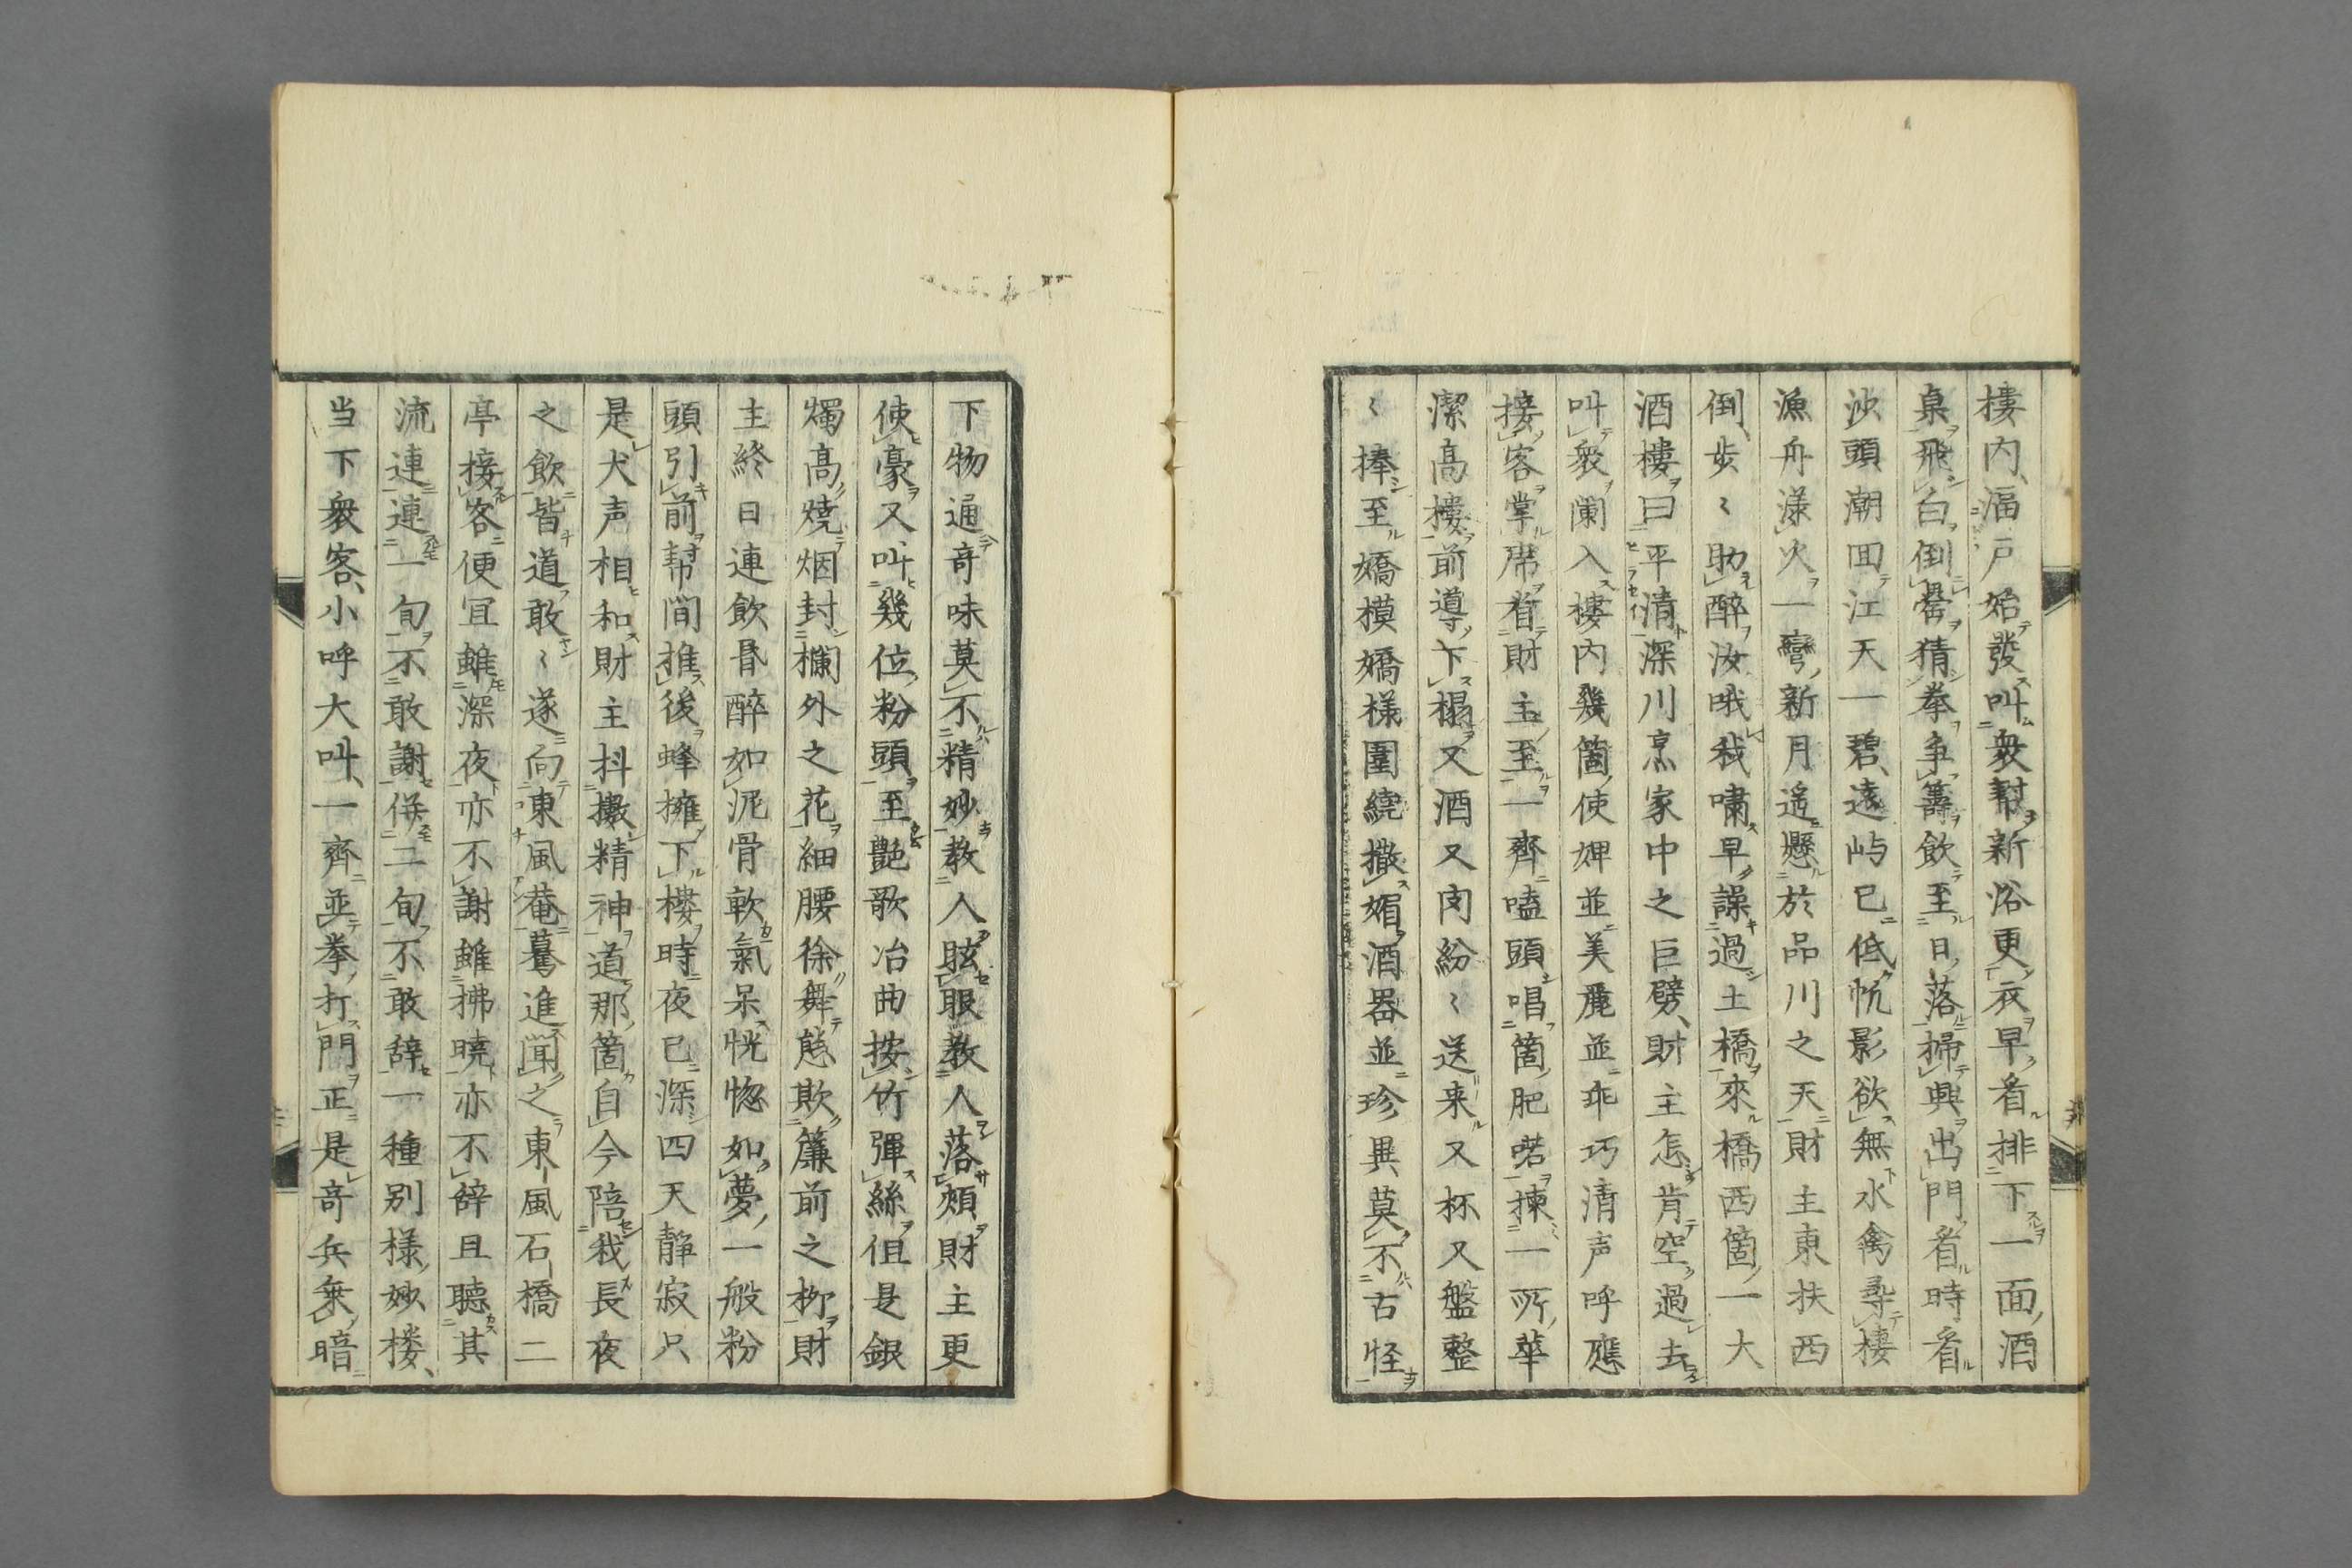 楼内、湢戸始發叫衆幇新浴更衣早看排下一面酒
桌飛白倒罍猜拳争籌飲至日落掃興出門看時看
沙頭潮回江天一碧、遠屿已低帆影欲無水禽尋棲
漁舟漾火一彎新月遥懸於品川之天財主東扶西
倒、歩〻助醉汝哦我嘯早譟過土橋來橋西箇一大
酒樓曰平清深川烹家中之巨擘、財主怎肯空過去
叫衆闌入樓内幾箇使婢並美麗並乖巧清声呼應
接客掌席看財主至一齊嗑頭唱箇肥喏揀一所華
潔高樓前導下榻又酒又肉紛〻送来又杯又盤整
〻捧至嬌模嬌様圍繞撒媚酒器並珍異、莫不古怪
下物通奇味莫不精妙教人眩眼教人落頬財主更
使豪又叫幾位粉頭至艶歌冶曲按竹彈絲但是銀
燭高燒烟封欄外之花細腰徐舞態欺簾前之柳財
主終日連飲昏醉如泥骨軟氣呆恍惚如夢一般粉
頭引前幇間推後蜂擁下樓時夜已深四天静寂只
是犬声相和財主抖擻精神道那箇自今陪我長夜
之飲皆道敢〻遂向東風菴驀進聞之東風石橋二
亭接客便宜雖深夜亦不謝雖拂暁亦不辞且聴其
流連連一旬不敢謝併二旬不敢辞一種別様妙楼、
当下衆客、小呼大叫、一齊並拳打門正是奇兵乗暗